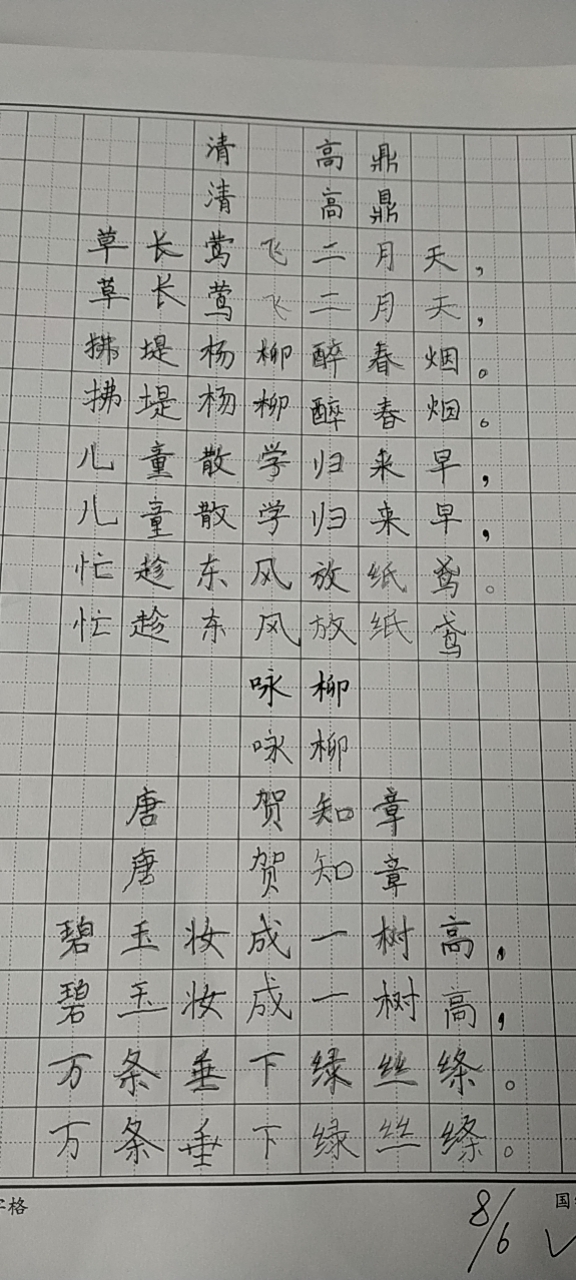 清 高鼎
清 高鼎
草长莺飞二月天,
草长莺飞二月天,
拂堤杨柳醉春烟。
拂堤杨柳醉春烟。
儿童散学归来早,
儿童散学归来早,
忙趁东风放纸鸢。
忙趁东风放纸鸢
咏柳
咏柳
唐 贺知章
唐 贺知章
碧玉妆成一树高,
碧玉妆成一树高,
万条垂下绿丝绦。
万条垂下绿丝绦。
字格
8/6